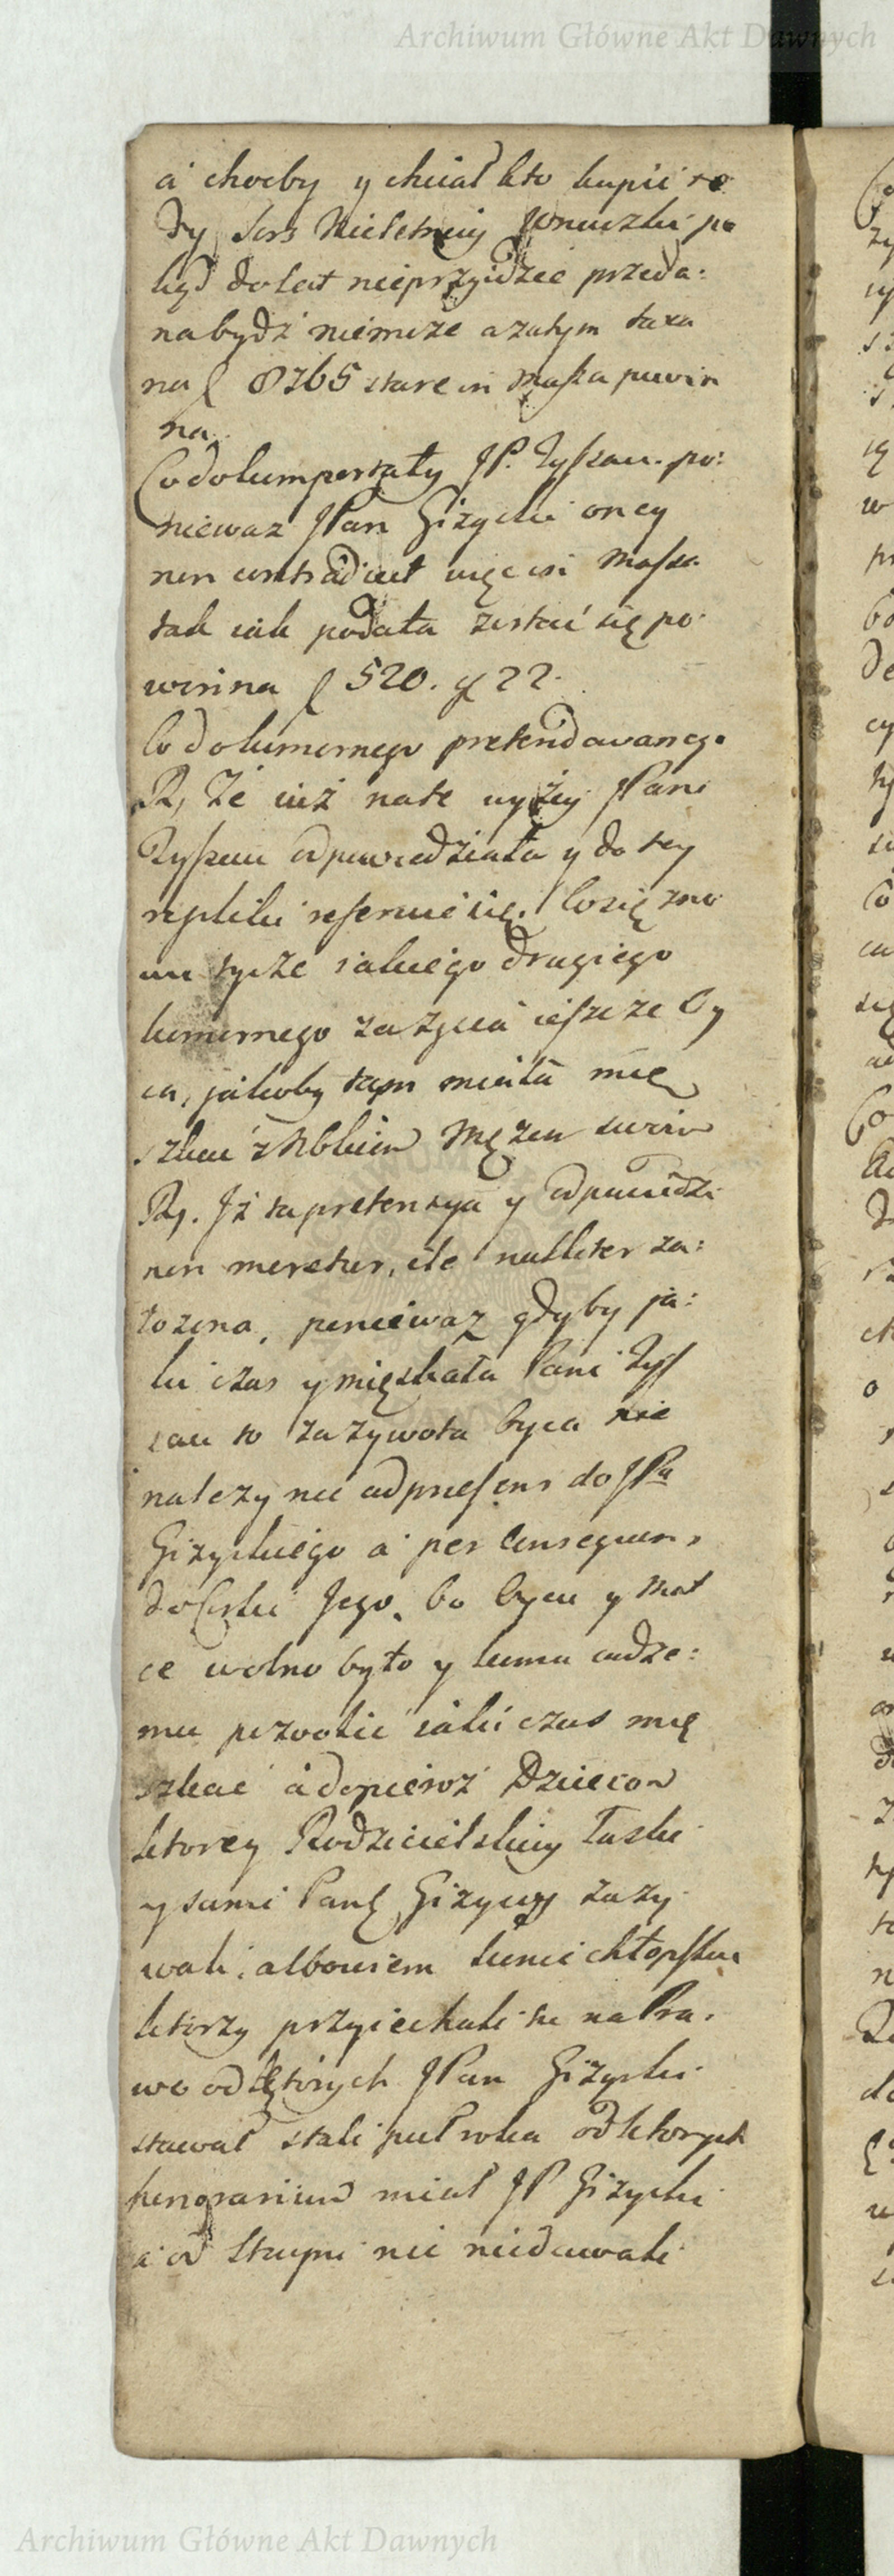 Archiwum Główne Akt Dawnych
a choćby y chciał kto kupić te
dy sors Nieletniey Wnuczki po
kąd do lat nieprzyidzie przeda:
na bydź niemoże a zatym taxa
na f 8765 in massa powin
na.
Co do komportaty JP. Tyszau. po:
nieważ JPan Giżycki oney
non contradicit więc in Massa
tak iak podała zostać się po
winna f 520. gr 22.
Co do komornego pretendowanego
Rx, Że iuż na te wyżey JPani
odpowiedziała y do tey
repliki referuie się. Co się zno
wu tycze iakiego drugiego
komornego za życia ieszcze Oy
ca, jakoby tam miała mie
szkać z Mężem swoim
Rx. Iż ta pretensya y odpowiedzi
non meretur, ile nulliter za:
łozona, poniewaz gdyby ja:
ki czas y mięszkała Pani Tysz
kau to za zywota Oyca nie
nalezy nec adpraesens do JPa
Gizyckiego a per consequens
do Corki Jego, bo Oycu y Mat
ce wolno było y komu cudze:
mu pozwolić iaki czas mię
szkać a dopieroż Dzieciom
ktorey Rodzicielskiey Łaski
y sami Panŧ Giżyccy zazy
wali, albowiem
ktorzy przyiechali tu na Pra:
wo od ktorych JPan Giżycki
stawał stali puł roku od ktorych
honorarium miał JP Giżycki
a od Stancyi nic niedawali
Archiwum Główne Akt Dawnych